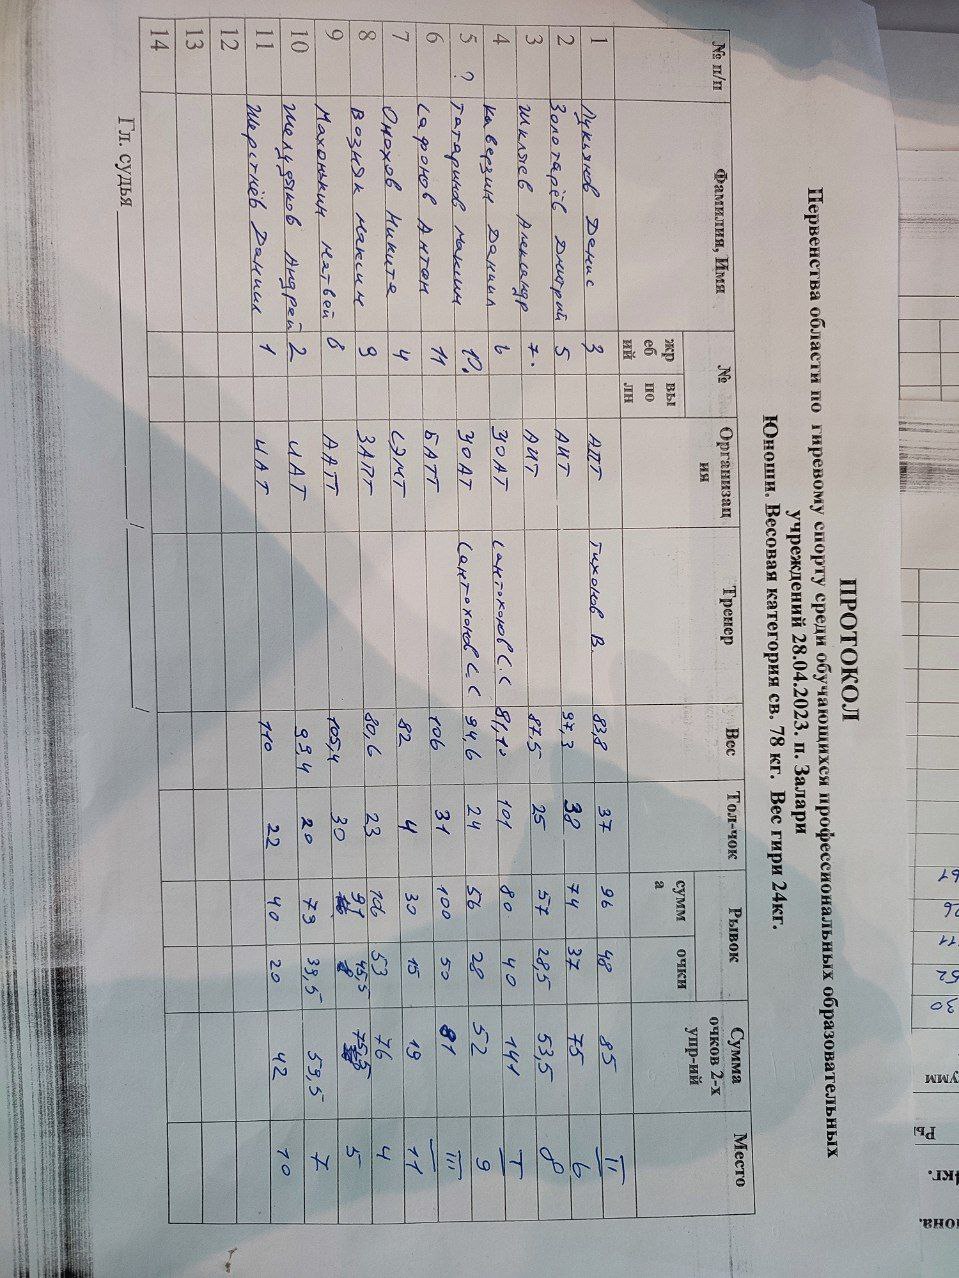 ПРОТОКОЛ
Первенства области по гиревому спорту среди обучающихся профессиональных образовательных
учреждений 28.04.2023. п. Залари
Юноши. Весовая категория св. 78 кг. Вес гири 24кг.
№ п/п Фамилия, Имя № Организац ия Тренер Вес Тол-чок Рывок Сумма очков 2-х упр-ий Место
жр еб ий вы по лн сумм а очки
1 Лукьянов Данис 3 АПТ Тихонов В. 83,8 37 96 48 85 II
2 Золотарёв Дмитрий 5 АИТ 97,3 38 74 37 75 6
3 Шкляев Александр 7. АИТ 87.5 25 57 28,5 53,5 8
4 Каверзин Даниил 6 ЗОАТ Сантохонов С. С 81,10 101 80 40 141 I
5 ? Татаринов Максим 10. ЗОАТ Сантохонов С. С 94,6 24 56 28 52 9
6 Сафонов Антон 11 БАТТ 106 31 100 50 81 III
7 Онохов Никита 4 СЭМТ 82 4 30 15 19 11
8 Возняк Максим 9 ЗАПТ 80,6 23 106 53 76 4
9 Махонькин Матвей 8 ААТТ 105,4 30 91 45,5 75,5 5
10 Шелудяков Андрей 2 ИАТ 99,4 20 79 39,5 59,5 7
11 Шерстнёв Даниил 1 ИАТ 110 22 40 20 42 10
12
13
14
Гл. судья / /
61
26
11
52
30
умм
Ры
кг.
она.